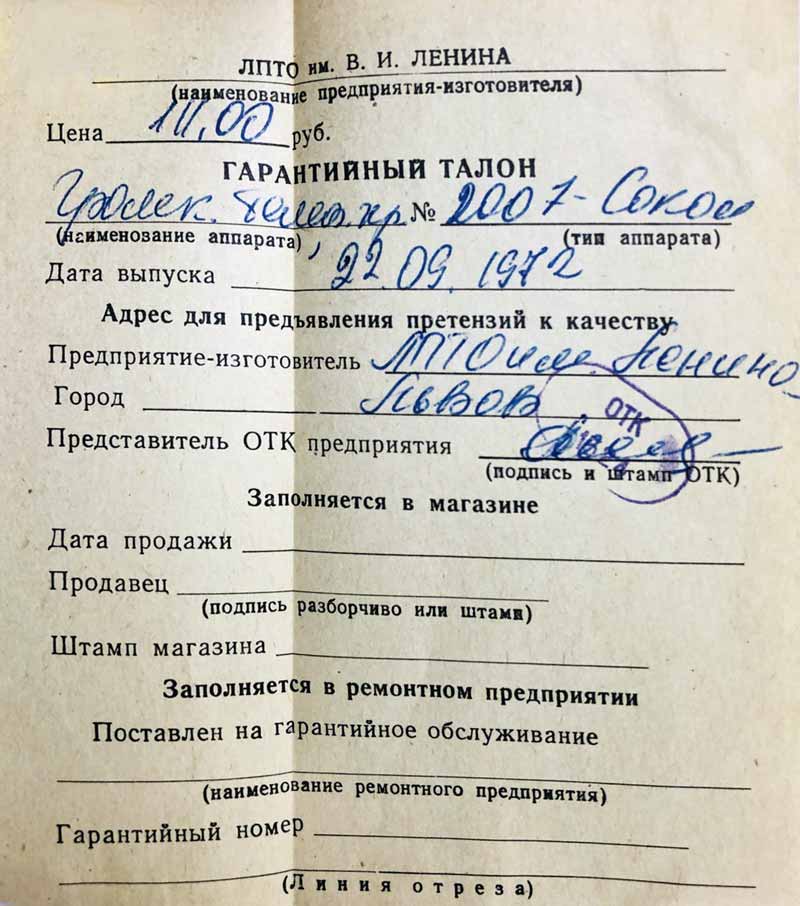 ЛПТО им. В. И. ЛЕНИНА
(наименование предприятия-изготовителя)
Цена 111,00 руб.
ГАРАНТИЙНЫЙ ТАЛОН
№ 2007- Сокол
(наименование аппарата) (тип аппарата)
Дата выпуска 22.09.1972
Адрес для предъявления претензий к качеству
Предприятие-изготовитель ЛПТО им. Ленина
Город Львов
ОТК
Представитель ОТК предприятия
(подпись и штамп ОТК)
Заполняется в магазине
Дата продажи
Продавец
(подпись разборчиво или штамп)
Штамп магазина
Заполняется в ремонтном предприятии
Поставлен на гарантийное обслуживание
(наименование ремонтного предприятия)
Гарантийный номер
(Линия отреза)